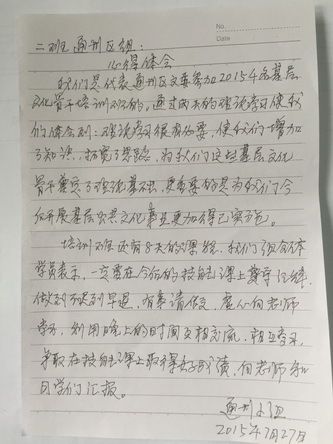 No.
Date
二班通州区组：
心得体会
我们是代表通州区文委参加2015年各基层
文化骨干培训班的，通过两天的理论学习使我
们体会到：理论学习很有必要，使我们增加
了知识，拓宽了思路，为我们这些基层文化
骨干奠定了理论基础，更重要的是为我们今
后开展基层公共文化事业更加得已实施。
培训班还有8天的课程，我们组全体
学员表示，一定要在今后的技能课上遵守纪律，
做到不迟到早退，有事请假，虚心向老师
学习，利用晚上的时间互相交流，相互学习，
争取在技能课上取得好成绩，向老师和
同学们汇报。
通州小组
2015年7月27日